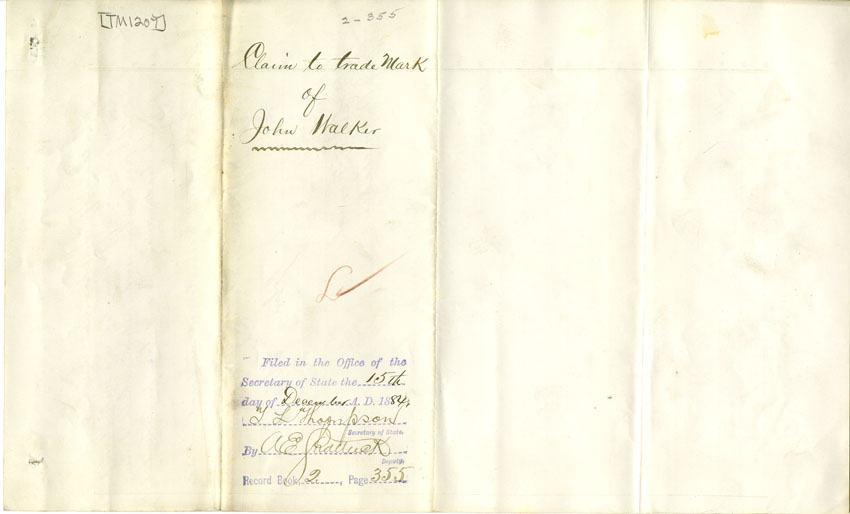 [TM1207]
2-355
Claim to trade Mark
of
John Walker
Filed in the Office of the
Secretary of State the 15th
day of December A. D. 1884,
T L Thompson
Secretary of State.
By A E Shattuck
Deputy.
Record Book, 2, Page 355